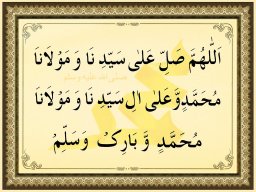 اَللّٰهُمَّ صَلِّ عَلٰى سَيِّدِ نَا وَ مَوْلَانَا
صلى الله عليه وسلم
مُحَمَّدٍ وَّعَلٰى اٰلِ سَيِّدِ نَا وَ مَوْلَانَا
مُحَمَّدٍ وَّ بَارِكْ وَسَلِّمْ